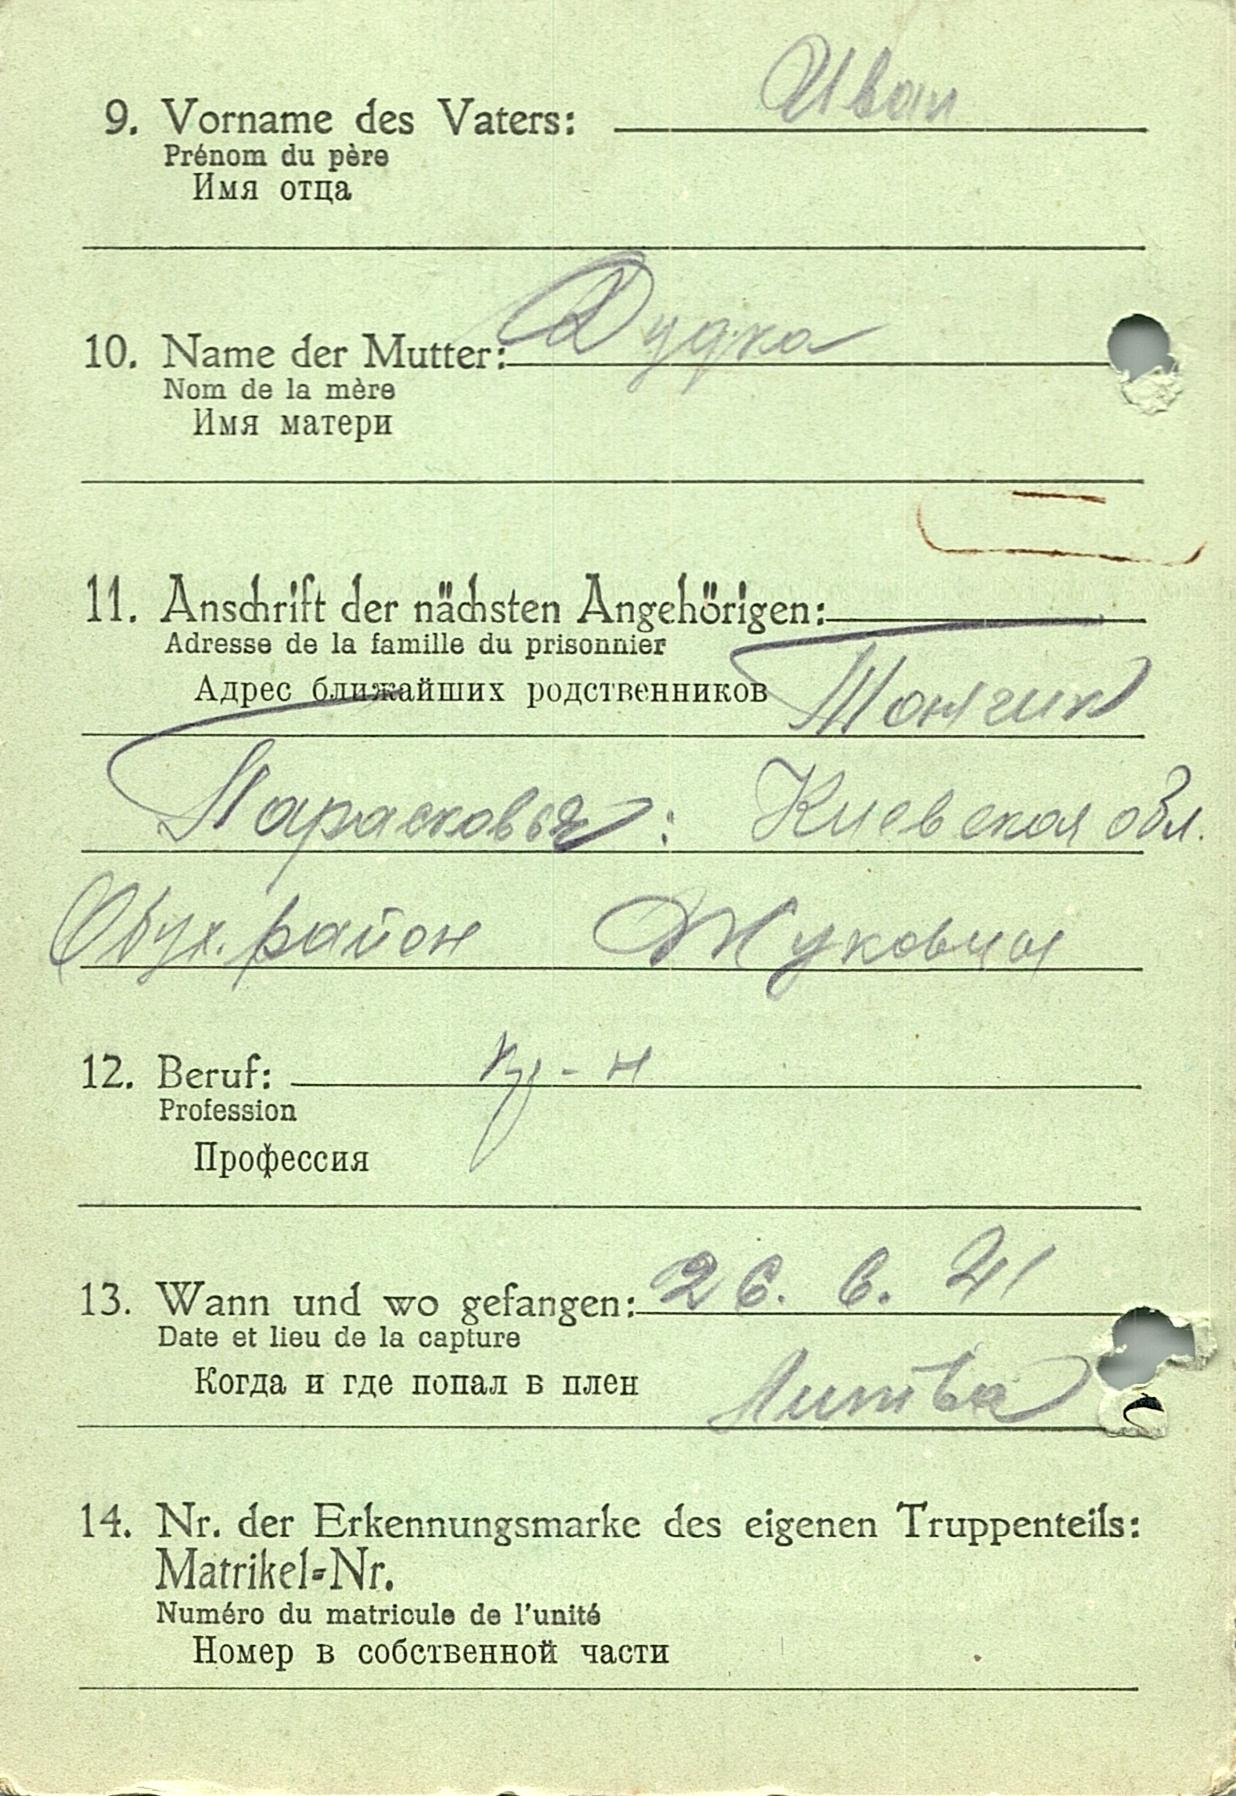 9. Vorname des Vaters: Иван
Prénom du père
Имя отца
10. Name der Mutter: Дудка
Nom de la mère
Имя матери
11. Anschrift der nächsten Angehörigen:
Adresse de la famille du prisonnier
Адрес ближайших родственников
Парасковья: Киевская обл.
Обух. район Жуковцы
12. Beruf: кр-н
Profession
Профессия
13. Wann und wo gefangen: 26. 6. 41
Date et lieu de la capture
Когда и где попал в плен Литва
14. Nr. der Erkennungsmarke des eigenen Truppenteils:
Matrikel-Nr.
Numéro du matricule de l'unité
Номер в собственной части